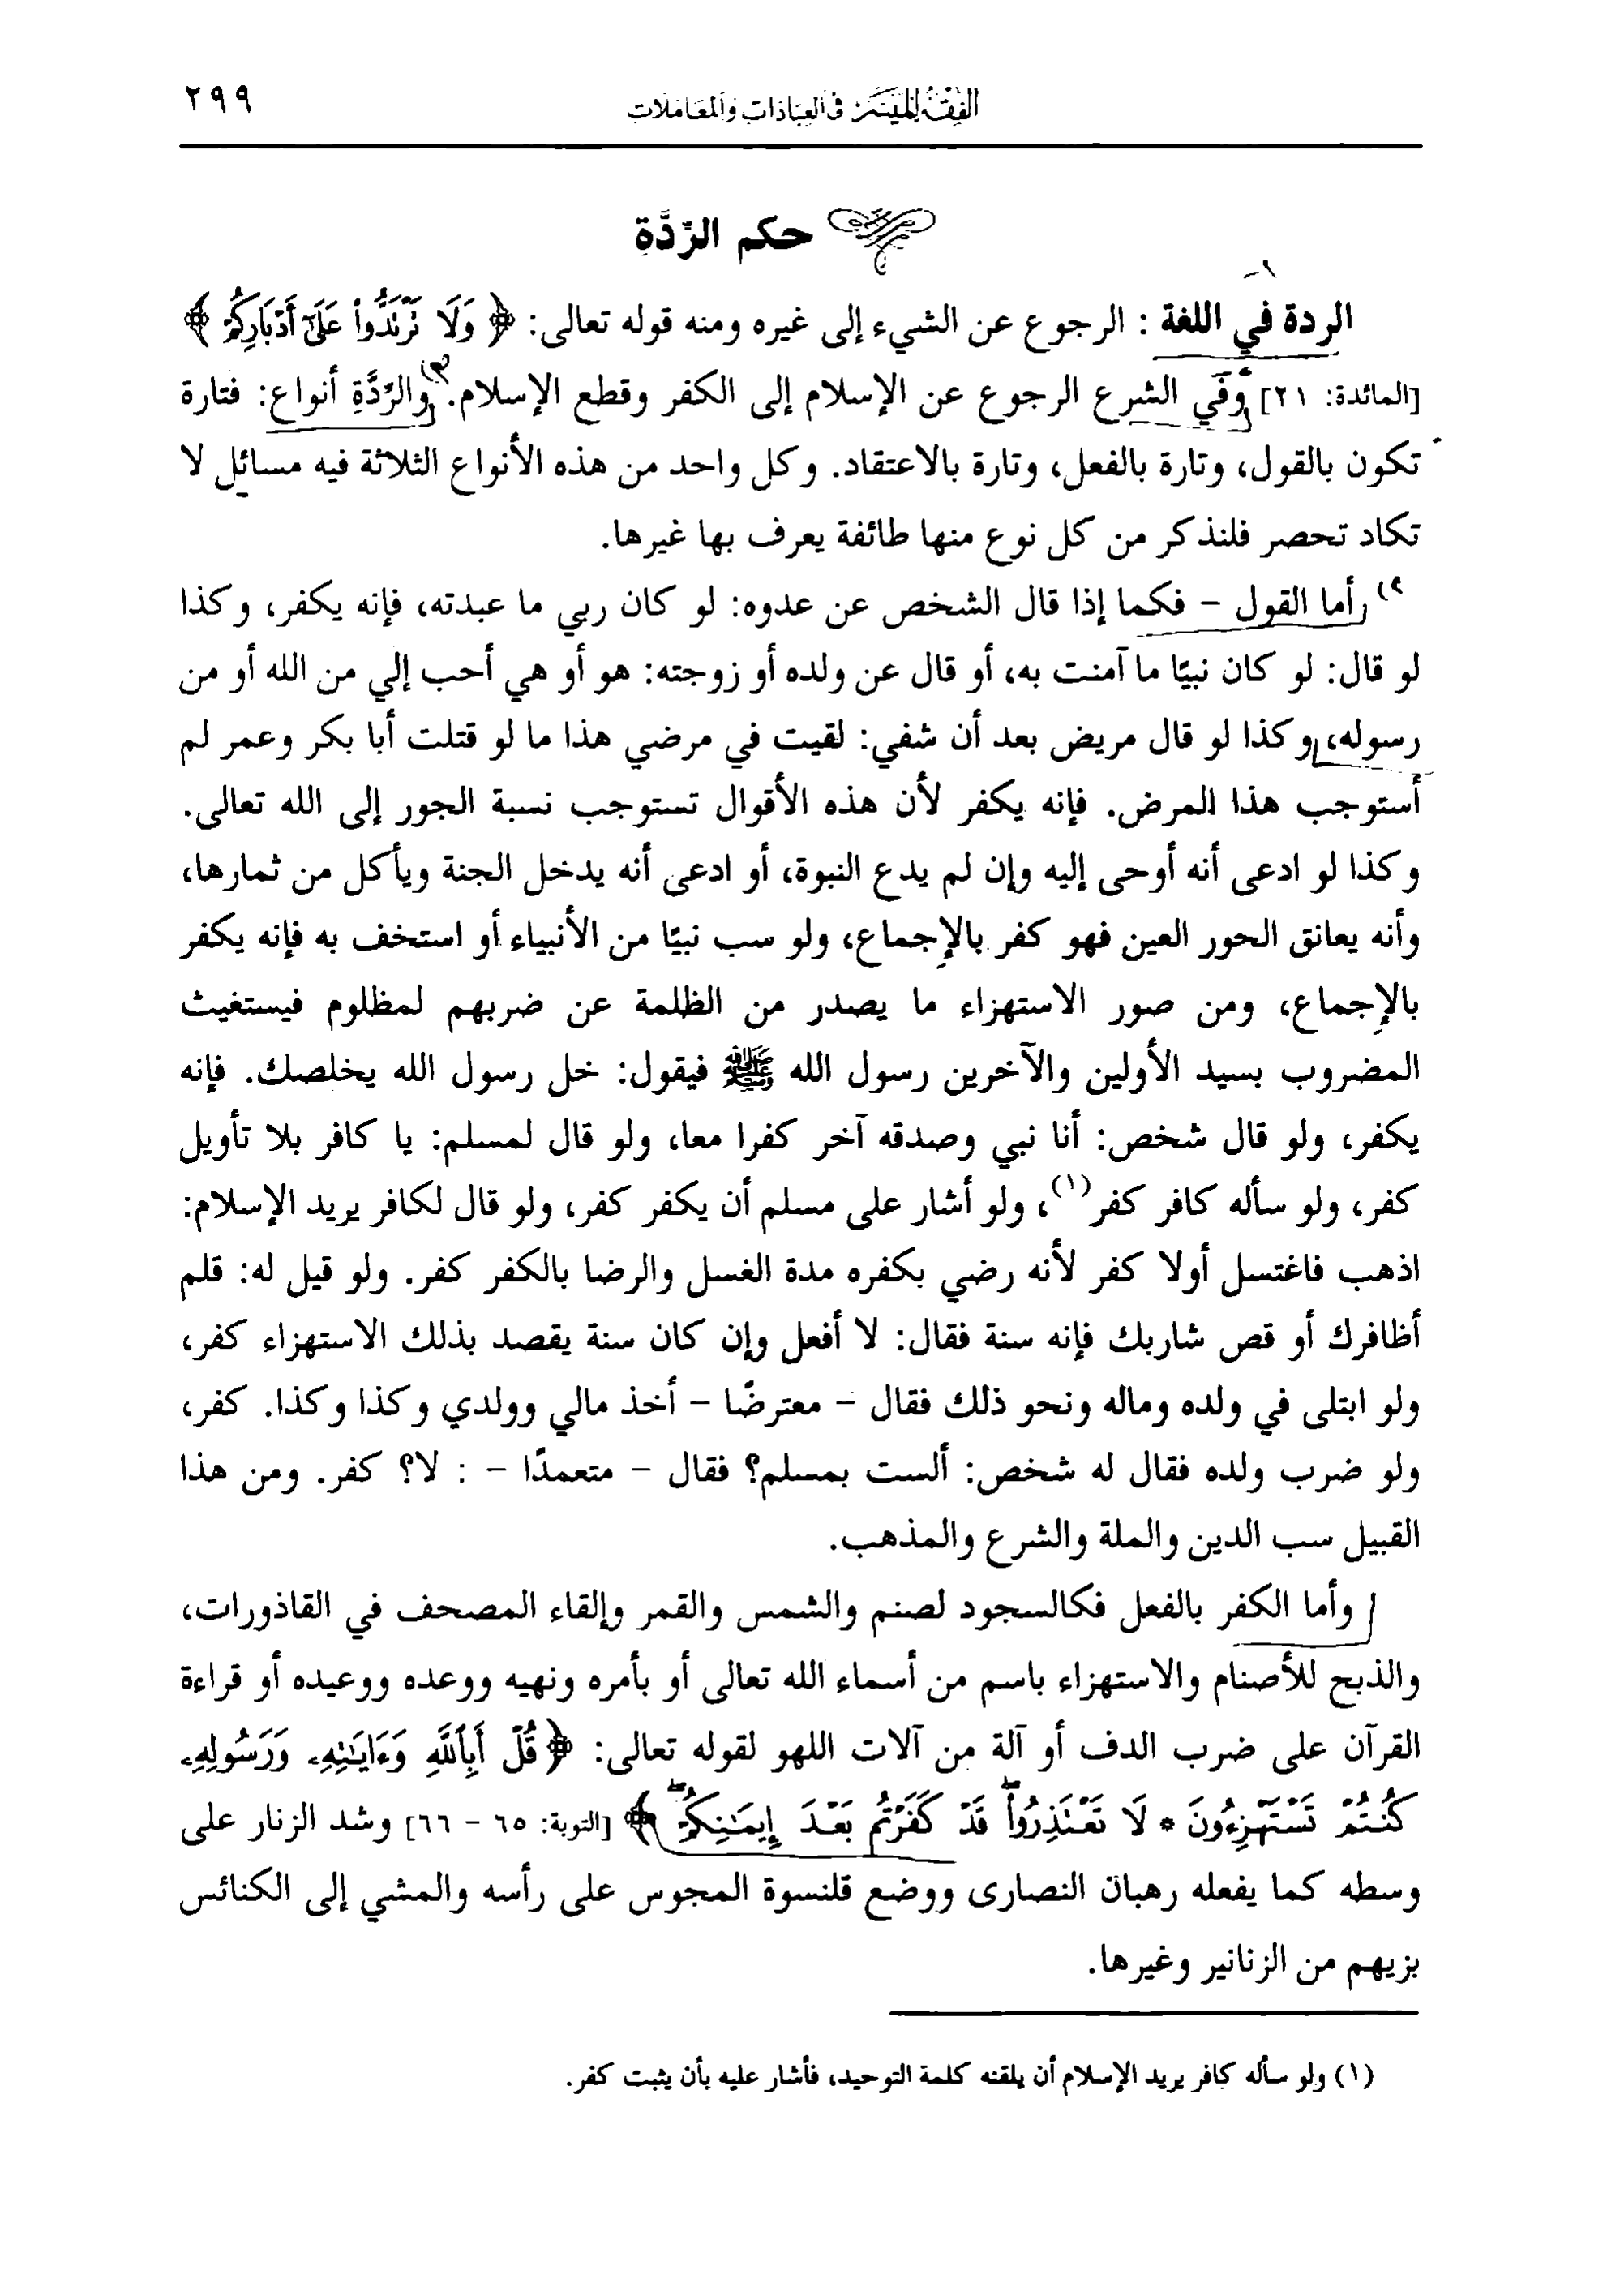 الفقه الميسر في العبادات والمعاملات ٢٩٩
حكم الرِّدَّة
الردة في اللغة : الرجوع عن الشيء إلى غيره ومنه قوله تعالى: ﴿ وَلَا تَرْتَدُّوا۟ عَلَىٰٓ أَدْبَارِكُمْ ﴾
[المائدة: ٢١] وفي الشرع الرجوع عن الإسلام إلى الكفر وقطع الإسلام. والرِّدَّةِ أنواع: فتارة
تكون بالقول، وتارة بالفعل، وتارة بالاعتقاد. وكل واحد من هذه الأنواع الثلاثة فيه مسائل لا
تكاد تحصر فلنذكر من كل نوع منها طائفة يعرف بها غيرها.
أما القول – فكما إذا قال الشخص عن عدوه: لو كان ربي ما عبدته، فإنه يكفر، وكذا
لو قال: لو كان نبيًا ما آمنت به، أو قال عن ولده أو زوجته: هو أو هي أحب إلي من الله أو من
رسوله، وكذا لو قال مريض بعد أن شفي: لقيت في مرضي هذا ما لو قتلت أبا بكر وعمر لم
أستوجب هذا المرض. فإنه يكفر لأن هذه الأقوال تستوجب نسبة الجور إلى الله تعالى.
وكذا لو ادعى أنه أوحى إليه وإن لم يدع النبوة، أو ادعى أنه يدخل الجنة ويأكل من ثمارها،
وأنه يعانق الحور العين فهو كفر بالإجماع، ولو سب نبيًا من الأنبياء أو استخف به فإنه يكفر
بالإجماع، ومن صور الاستهزاء ما يصدر من الظلمة عن ضربهم لمظلوم فيستغيث
المضروب بسيد الأولين والآخرين رسول الله ﷺ فيقول: خل رسول الله يخلصك. فإنه
يكفر، ولو قال شخص: أنا نبي وصدقه آخر كفرا معا، ولو قال لمسلم: يا كافر بلا تأويل
كفر، ولو سأله كافر كفر(١)، ولو أشار على مسلم أن يكفر كفر، ولو قال لكافر يريد الإسلام:
اذهب فاغتسل أولا كفر لأنه رضي بكفره مدة الغسل والرضا بالكفر كفر. ولو قيل له: قلم
أظافرك أو قص شاربك فإنه سنة فقال: لا أفعل وإن كان سنة يقصد بذلك الاستهزاء كفر،
ولو ابتلى في ولده وماله ونحو ذلك فقال – معترضًا – أخذ مالي وولدي وكذا وكذا. كفر،
ولو ضرب ولده فقال له شخص: ألست بمسلم؟ فقال – متعمدًا – : لا؟ كفر. ومن هذا
القبيل سب الدين والملة والشرع والمذهب.
وأما الكفر بالفعل فكالسجود لصنم والشمس والقمر وإلقاء المصحف في القاذورات،
والذبح للأصنام والاستهزاء باسم من أسماء الله تعالى أو بأمره ونهيه ووعده ووعيده أو قراءة
القرآن على ضرب الدف أو آلة من آلات اللهو لقوله تعالى: ﴿ قُلْ أَبِٱللَّهِ وَءَايَـٰتِهِۦ وَرَسُولِهِۦ
كُنتُمْ تَسْتَهْزِءُونَ * لَا تَعْتَذِرُوا۟ ۖ قَدْ كَفَرْتُم بَعْدَ إِيمَـٰنِكُمْ ۖ ﴾ [التوبة: ٦٥ – ٦٦] وشد الزنار على
وسطه كما يفعله رهبان النصارى ووضع قلنسوة المجوس على رأسه والمشي إلى الكنائس
بزيهم من الزنانير وغيرها.
(١) ولو سأله كافر يريد الإسلام أن يلقنه كلمة التوحيد، فأشار عليه بأن يثبت كفر.